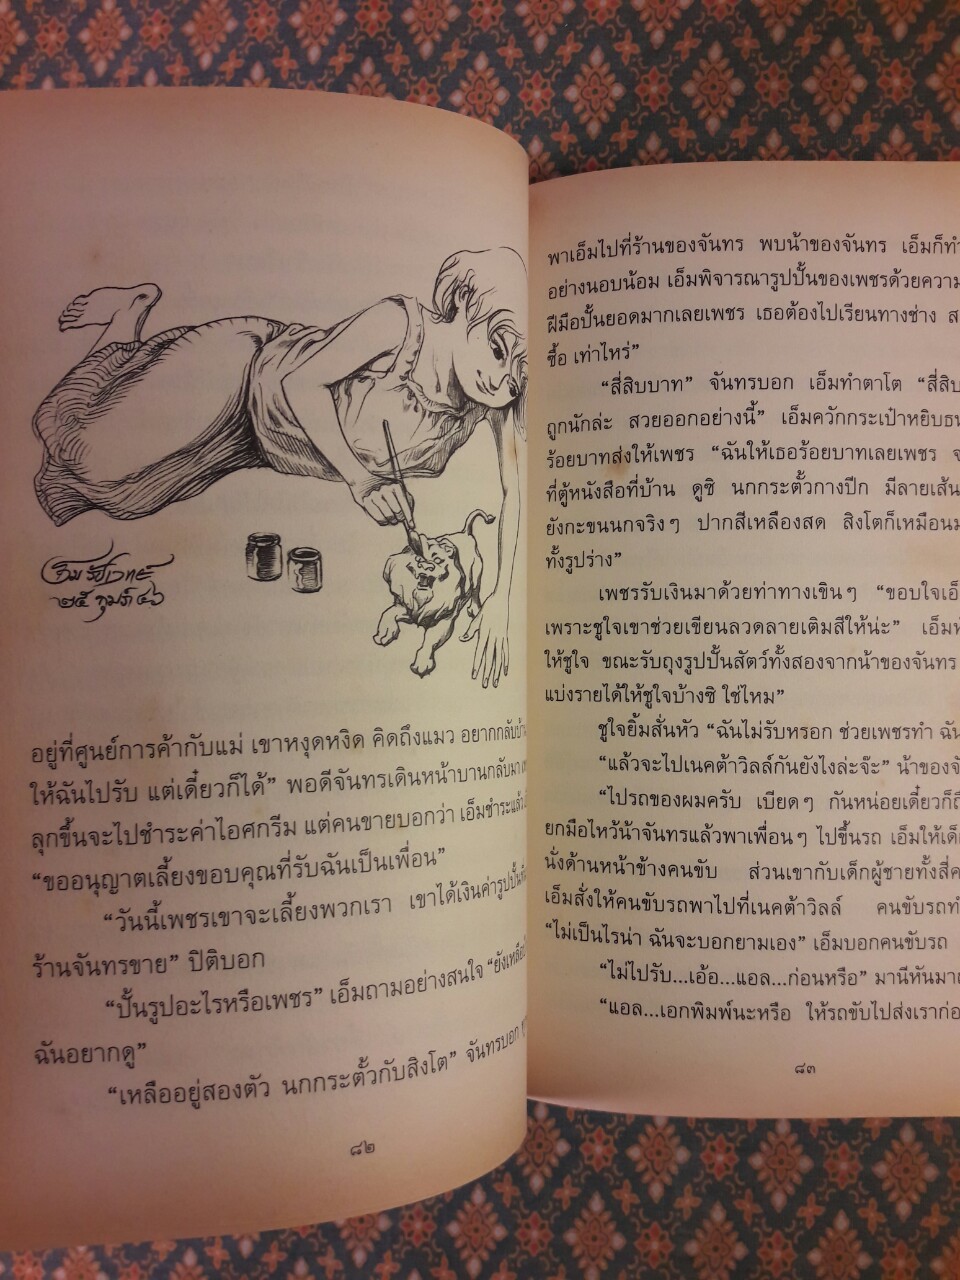 ๒๕ กุมภ์ ๔๖
อยู่ที่ศูนย์การค้ากับแม่ เขาหงุดหงิด คิดถึงแมว อยากกลับบ้าน
ให้ฉันไปรับ แต่เดี๋ยวก็ได้” พอดีจันทรเดินหน้าบานกลับมา
ลุกขึ้นจะไปชำระค่าไอศกรีม แต่คนขายบอกว่า เอ็มชำระแล้ว
“ขออนุญาตเลี้ยงขอบคุณที่รับฉันเป็นเพื่อน”
“วันนี้เพชรเขาจะเลี้ยงพวกเรา เขาได้เงินค่ารูปปั้นที่
ร้านจันทรขาย” ปิติบอก
“ปั้นรูปอะไรหรือเพชร” เอ็มถามอย่างสนใจ “ยังเหลือ
ฉันอยากดู”
“เหลืออยู่สองตัว นกกระตั้วกับสิงโต” จันทรบอก
๘๒
พาเอ็มไปที่ร้านของจันทร พบน้าของจันทร เอ็มก็ทำ
อย่างนอบน้อม เอ็มพิจารณารูปปั้นของเพชรด้วยความ
ฝีมือปั้นยอดมากเลยเพชร เธอต้องไปเรียนทางช่าง
ซื้อ เท่าไหร่”
“สี่สิบบาท” จันทรบอก เอ็มทำตาโต “สี่สิบ
ถูกนักล่ะ สวยออกอย่างนี้” เอ็มควักกระเป๋าหยิบธน
ร้อยบาทส่งให้เพชร “ฉันให้เธอร้อยบาทเลยเพชร
ที่ตู้หนังสือที่บ้าน ดูซิ นกกระตั้วกางปีก มีลายเส้น
ยังกะขนนกจริงๆ ปากสีเหลืองสด สิงโตก็เหมือน
ทั้งรูปร่าง”
เพชรรับเงินมาด้วยท่าทางเขินๆ “ขอบใจเอ็
เพราะชูใจเขาช่วยเขียนลวดลายเติมสีให้น่ะ” เอ็มหั
ให้ชูใจ ขณะรับถุงรูปปั้นสัตว์ทั้งสองจากน้าของจันทร
แบ่งรายได้ให้ชูใจบ้างซิ ใช่ไหม”
ชูใจยิ้มสั่นหัว “ฉันไม่รับหรอก ช่วยเพชรทำ ฉัน
“แล้วจะไปเนคต้าวิลล์กันยังไงล่ะจ๊ะ” น้าของจั
“ไปรถของผมครับ เบียดๆ กันหน่อยเดี๋ยวก็ถึ
ยกมือไหว้น้าจันทรแล้วพาเพื่อนๆ ไปขึ้นรถ เอ็มให้เด็
นั่งด้านหน้าข้างคนขับ ส่วนเขากับเด็กผู้ชายทั้งสี่ค
เอ็มสั่งให้คนขับรถพาไปที่เนคต้าวิลล์ คนขับรถทำ
“ไม่เป็นไรน่า ฉันจะบอกยามเอง” เอ็มบอกคนขับรถ
“ไม่ไปรับ...เอ้อ...แอล...ก่อนหรือ” มานีหันมา
“แอล...เอกพิมพ์นะหรือ ให้รถขับไปส่งเราก่อ
๘๓